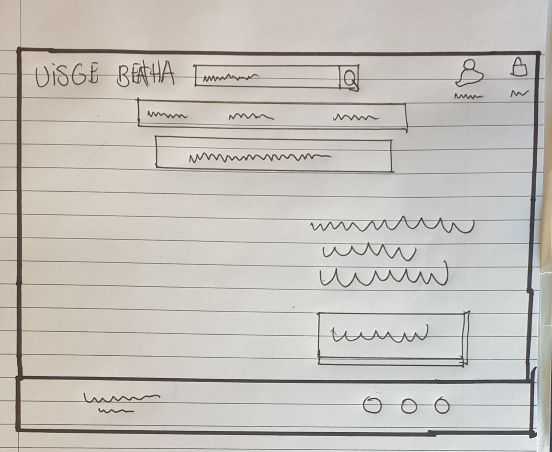 UiSGE BEATHA